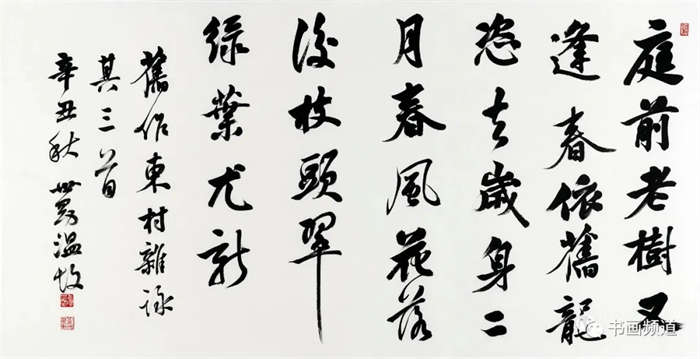 庭前老樹又
逢春依舊龍
姿去歲身二
月春風花落
後枝頭翠
綠葉尤新
舊作東村雜詠
其三首
辛丑秋 温
书画频道